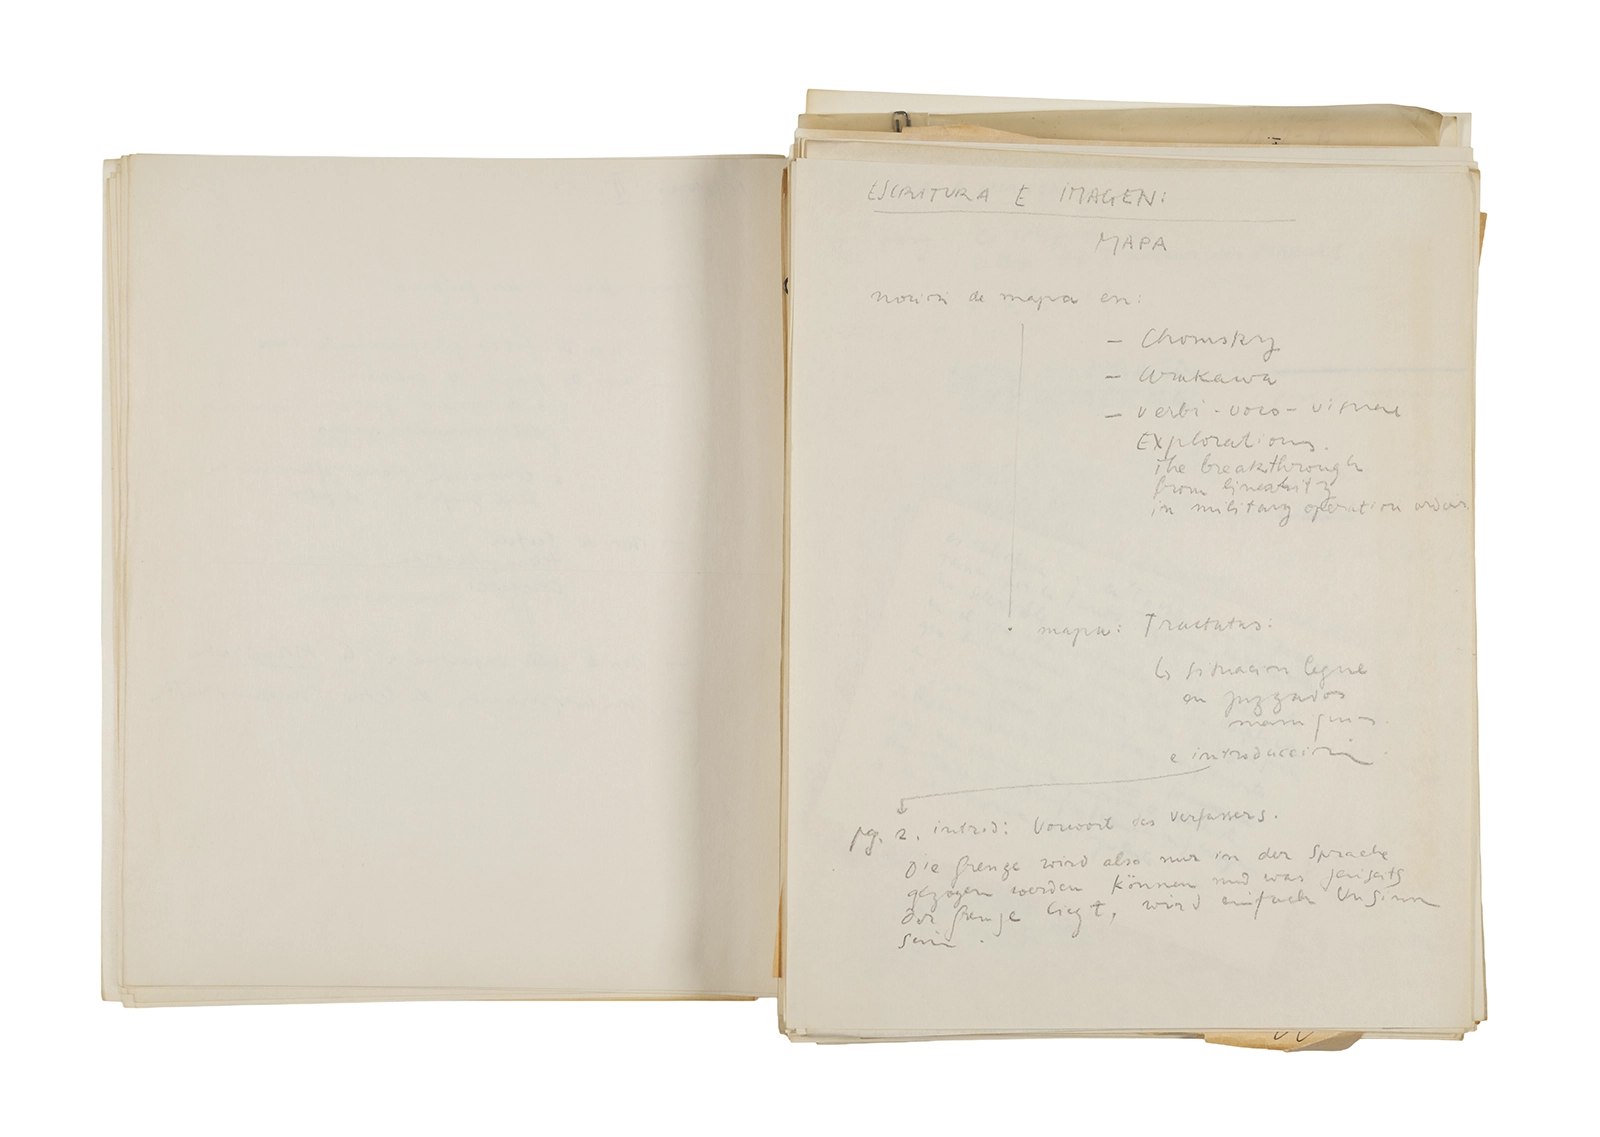 ESCRITURA E IMAGEN:
MAPA
noción de mapa en:
– Chomsky
– Arakawa
– Verbi-voco-visual
Explorations.
The breakthrough
from linearity
in military operation order
mapa: Tractatus:
situacion
en juzgados
e introducción
pg. 2. introd: Vorwort des Verfassers.
Die Grenze wird also nur in der Sprache
gezogen werden können und was jenseits
der Grenze liegt, wird einfach Unsinn
sein.